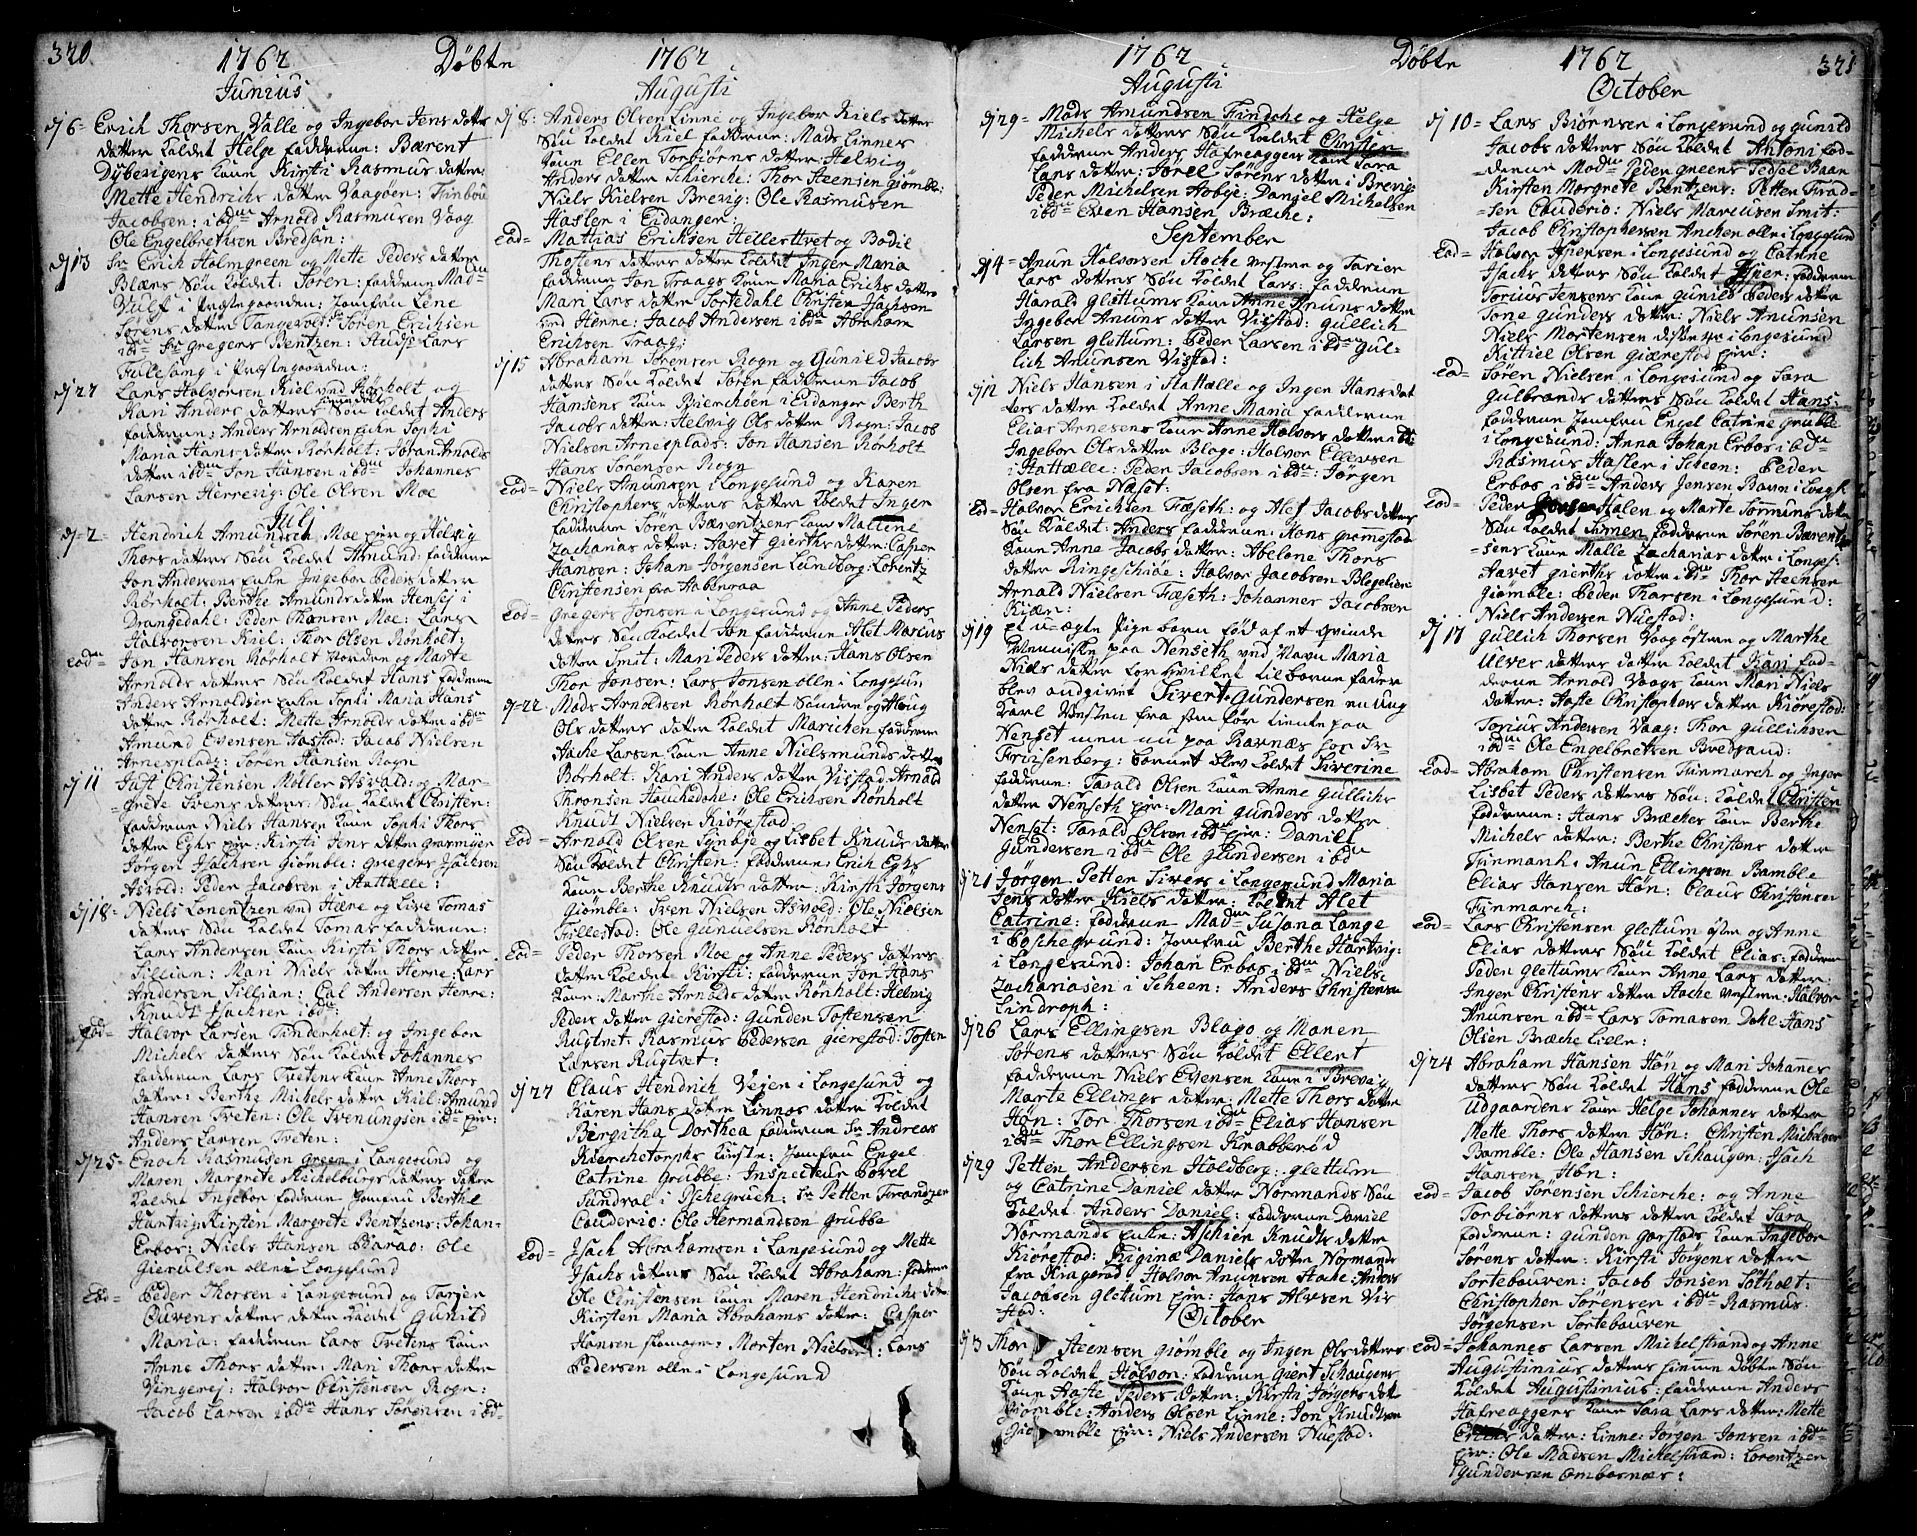 320
1762
Döbte
1762
Junius
Augusti
d/6 = Erich Thorsen Valle og Ingebor Jens datters
datter kaldet Helge fadderne: Bærent
Dyberigens kone Kirsti Rasmus datter:
Mette Hendrichs datter Vaagöen: Finboe
Jacobsen: ibdm Arnold Rasmusen Vaag
Ole Engelbrethsen Bredsan:
d/13 Sr Erich Holmgreen og Mette Peders datter
Blæns Sön kaldet: Sören: fadderne Madm
Wulf i Præstegaarden: Jomfru Lene
Sörens datter Tangevold: Sr Sören Erichsen
ibdm Sr gregers Bentzen: Studs: Lars
Fuglesang i Præstegaarden:
d/27 Lars Halvorsen Kiel ved Rörholt og
Kari Anders datters Sön kaldet Anders
fadderne: Anders Arnoldsen enke Sophi
Maria Hans datter Rörholt: Johan Arnolds
datter ibdm Jon Hansen ibdm Johannes
Larsen Herrevig: Ole Olsen Moe
Julj
d/2 = Hendrich Amundsen Moe og Helvig
Thors datters Sön kaldet Amund: fadderne
Jon Andersens enke Ingebor Peders datter
Rörholt: Berthe Amunds datter Hensej i
Drangedahl: Peder Thorsen Moe: Lars
Halvorsen Kiel: Thor Olsen Rönholt:
Eodm = Jon Hansen Rörholt norden og Marte
Arnolds datters Sön kaldet Hans fadderne
Anders Arnoldsen enke Sophi Maria Hans
datter Rörholt: Mette Arnolds datter ibdm
Amund Evensen Fastad: Jacob Nielsen
Arnesplads: Sören Hansen Rogn
d/11 Just Christensen Möller Asvold: og Mar-
grete Svens datters: Sön kaldet Christen:
fadderne Niels Hansen kone Sophi Thors
datter Eghs: Kirsti Jens datter grasmyer
Jörgen Isachsen Giömble: gregers Isachsen
Asvold: Peder Jacobsen i Stattelle:
d/18 = Niels Lorentzen ved Hære og Live Tomas
datters Sön kaldet Tomas fadderne:
Lars Andersen kone Kirsti Thors datter
Tillian: Mari Niels datter Herre: Lars
Andersen Tillian: Cal Andersen Herre:
Knudt Isachsen ibdm
Eod = Halvor Larsen Tinderholt: og Ingebor
Michels datters Sön kaldet Johannes
fadderne Lars Tvetens kone Anne Thors
datter: Berthe Michels datter Kiel: Amund
Hansen Tveten: Ole Svenungsen ibdm
Anders Larsen Tveten:
d/25 = Enoch Rasmusen green i Langesund og
Maren Margrete Michelburgs datters datter
kaldet Ingebor fadderne Jomfru Berthe
Hartvig: Kirsten Margrete Bentzens: Johan
Erbos: Niels Hansen Baroo: Ole
Gierulsen alle i Longesund
Eod = Peder Thorsen i Langesund og Torjer
Ouvens datters datter kaldet Gunild
Maria: fadderne Lars Tvetens kone
Anne Thors datter: Mari Thors datter
Vingerej: Halvor Christensen Rogn:
Jacob Larsen ibdm Hans Sörensen ibdm
d/8: Anders Olsen Linne og Ingebor Kiels datters
Sön kaldet Kiel fadderne: Mads Linnes
kone Ellen Torbiörns datter: Helvig
Anders datter Schierche: Thor Steensen giömble:
Niels Kielsen Brevig: Ole Rasmusen
Hasler i Eidanger:
Eod = Mattias Erichsen Hellertvet og Bodil
Thosens datters datter kaldet Inger Maria
fadderne Jon Traags kone Maria Erichs datter
Mari Lars datter Sortedahl Christen Isachsen
ved Henne: Jacob Andersen ibdm Abraham
Erichsen Traag:
d/15 Abraham Sörensen Rogn og Gunild Jacobs
datters Sön kaldet Sören fadderne Jacob
Hansens kone Bierchöen i Eidanger Berth
Jacobs datter: Helvig Ols datter Rogn: Jacob
Nielsen Arnesplads: Jon Hansen Rörholt
Hans Sörensen Rogn
Eod = Niels Amunsen i Longesund og Karen
Christophers datters datter kaldet Inger
fadderne Sören Bærentzens kone Mallene
Zacharias datter: Aavet gierths datter: Casper
Hansen: Johan Jörgensen Lundberg: Lorentz
Christensen fra Aabenraa
Eod = gregers Jonsen i Longesund og Anne Peders
datters Sön kaldet Jon fadderne Alet Marcus
datter Smit: Mari Peders datter: Hans Olsen
Thor Jonsen: Lars Jonsen alle i Longesun
d/22 Mads Arnoldsen Rörholt Söndre og Aloug
Ols datters datter kaldet Marichen fadderne
Aache Larsen kone Anne Nielsmunds datter
Rörholt: Kari Anders datter Visstad: Arnold
Thronsen Houchedahl: Ole Erichsen Rönholt
Knudt Nielsen Kiörestad:
Eod = Arnold Olsen Synböe og Lisbet Knuds datters
Sön kaldet Christen: fadderne: Erich Eghs
kone Berthe Knuds datter: Kirsti Jörgens
Giömble: Sven Nielsen Asvold: Ole Nielsen
Fillestad: Ole gunuelsen Rönholt
Eod = Peder Thorsen Moe og Anne Peders datters
datter kaldet Kirsti: fadderne Jon Hans
kone: Marthe Arnolds datter Rönholt: Helvig
Peders datter gierestad: Gunder Tostensen
Rugtvet: Rasmus Pedersen gierestad: Tosten
Larsen Rugtvet:
d/27 Claus Hendrich Vejen i Longesund og
Karen Hans datter Linnes datter kaldet
Birgitha Dorthea fadderne Sr Andreas
Kierchetorphs kieste: Jomfru Engel
Catrine Grubbe: Inspecteur Povel
Sandval i Eschegrich: Sr Petter Tvandzen
Couderio: Ole Hermandsen Grubbe
Eod = Isach Abrahamsen i Langesund og Mette
Isachs datters Sön kaldet Abraham: fadderne
Ole Christensen kone Maren Hendrichs datter
Kirsten Maria Abrahams datter: Casper
Hansen: Morten Nielsen: Lars
Pedersen alle i Longesund
1762
Döbte
1762
321
Augusti
October
d/29 = Mads Amundsen Findahl og Helge
Michels datters Sön kaldet Christen
fadderne Anders Hafreaggers kone Sara
Lars datter: Sörel Sörens datter i Brevig
Peder Michelsen Aabye: Daniel Michelsen
ibdm Even Hansen Bræche:
September
d/4 = Anun Halvorsen Stoche vestre og Torier
Lars datters Sön kaldet Lars: fadderne
Harald Glettums kone Anne Anuns datter
Ingebor Anuns datter Visstad: Gullich
Larsen glottum: Peder Larsen ibdm Gul-
lich Anunsen Visstad:
d/12 Niels Hansen i Stattælle og Ingen Hans dat
ters datter kaldet Anne Maria fadderne
Elias Arnesens kone Anne Halvors datter ibdm
Ingebor Ols datter Blage: Halvor Ellevsen
i Stattælle: Peder Jacobsen ibdm: Jörgen
Olsen fra Næset:
Eod = Halvor Erichsen Fæseth: og Alet Jacobs datters
Sön kaldet Anders fadderne: Hans gromestad
kone Anne Jacobs datter: Abelone Thors
datter Ringeschiöe: Halvor Jacobsen Blegelien
Arnold Nielsen Fæseth: Johannes Jacobsen
Kiær:
d/19 et u-ægte Pige barn föd af et Qvinde
Menniske paa Nenseth ved Navn Maria
Niels datter for hvilket til barne fader
blev angivet Sivert Gundersen en ung
karl fra för tiente paa
Nenset men nu paa Ravnæs hos Sr
Friisenberg: barnet blev kaldet Siverine
fadderne: Tarald Olsen kone Anne Gullichs
datter Nenseth: Mari Gunders datter
Nenset: Tarald Olsen ibdm: Daniel
Gundersen ibdm Ole Gundersen ibdm
d/21 Jörgen Petter Sivers i Longesund Maria
Jens datter Kiels datter: kaldet Alet
Catrine: fadderne Madm Susana Lange
i Poschegrund: Jomfru Berthe Hartvig:
i Longesund: Johan Erbos ibdm Niels
Zachariasen i Scheen: Anders Christensen
Lindroph:
d/26 Lars Ellingsen Blago og Maren
Sörens datters Sön kaldet Ellent
fadderne Niels Evensen kone i Brevig
Marte Ellings datter: Mette Thors datter
Hön: Tor Thorsen ibdm Elias Hansen
ibdm Thor Ellingsen Krabberöd
d/29 Petter Andersen Holdberg: glettum
og Catrine Daniel datter Normands Sön
kaldet Anders Daniel: fadderne Daniel
Normands enke: Aschier Knuds datter
Kiörestad: Eiginæ Daniels datter Normands
fra Krageröe Halvor Anunsen Stoche: Anders
Jacobsen Glettum: Hans Alvsen Vis
stad:
October
d/3 Thor Steensen giömble og Ingen Ols datters
Sön kaldet Halvor: fadderne Giert Schaugens
kone Aaste Peders datter: Kirsti Jörgens dat
Giömble: Anders Olsen Linne: Jon Knudsen
giömble: Niels Andersen Nuestad:
d/10 = Lars Biörnsen i Longesund og Gunild
Jacobs datters Sön kaldet Antoni fad-
derne Madm Peder greens Sedsel Baan
Kirsten Margrete Bentzens: Petter Tvad-
sen Couderio: Niels Marcusen Smit:
Jacob Christophersen Anchen alle i Longesund
Eod = Halvor Espensen i Longesund og Catrine
Isachs datters Sön kaldet Espen: fadderne
Torius Jensens kone Gunild Peders datter
Tone Gunders datter: Niels Anunsen
Niels Mortensen i Longesund
Kittiel Olsen giærestad:
Eod = Sören Nielsen i Longesund og Sara
Gulbrands datters Sön kaldet Hans:
fadderne Jomfru Engel Catrine Grubbe
i Longesund: Anna Johan Erbos ibdm
Rasmus Hasler i Scheen: Peder
Erbos ibdm Anders Jensen Bavn i Longs
Eod = Peder Halen og Marte Sormins datter
Sön kaldet Simen fadderne Sören Bærent
sens kone Malle Zacharias datter i Longes:
Aavet gierths datter ibdm Thor Steensen
Giömble: Peder Thorsen i Longesund:
Niels Andersen Nuestad:
d/17 Gullich Thorsen Vaag östern og Marthe
Ulver datters datter kaldet Kari fad-
derne Arnold Vaags kone Mari Niels
datter: Aaste Christophers datter Kiörestad:
Torius Andersen Vaag: Thor Gullichsen
ibdm Ole Engelbretsen Bredsand:
Eod = Abraham Christensen Finmarch og Inger
Lisbet Peders datters Sön: kaldet Christen
fadderne: Hans Bræches kone Berthe
Michels datter: Berthe Christens datter
Finmarch: Anun Ellingsen Bamble
Elias Hansen Hön: Claus Christensen
Finmarch:
Eod = Lars Christensen glettum östre og Anne
Elias datters Sön kaldet Elias: fadderne
Peder Glettums kone Anne Lars datter:
Inger Christens datter Stoche vestre: Halvor
Anunsen ibdm Lars Tomasen Dahl: Hans
Olsen Bræche Lille:
d/24 Abraham Hansen Hön og Mari Johannes
datters Sön kaldet Hans fadderne Ole
Udgaardens kone Helge Johannes datter
Mette Thors datter Hön: Christen Michelsen
Bamble: Ole Hansen Schaugen: Isach
Hansen Hön:
Eod = Jacob Sörensen Schierche: og Anne
Torbiörns datters datter kaldet Sara
fadderne: Gunder Gorstads kone Ingebor
Sörens datter: Kirsti Jörgens datter
Sortebauven: Jacob Jonsen Sötholt:
Christopher Sörensen ibdm Rasmus
Jörgensen Sortebauven
Eod = Johannes Larsen Michelstrand og Anne
Augustinius datters hiemme döbte Sön
kaldet Augustinius: fadderne Anders
Hafreaggers kone Sara Lars datter: Mette
datter: Linne: Jörgen Jonsen ibdm
Ole Madsen Michelstrand: Lorentzen
Gundersen Ombornæs: